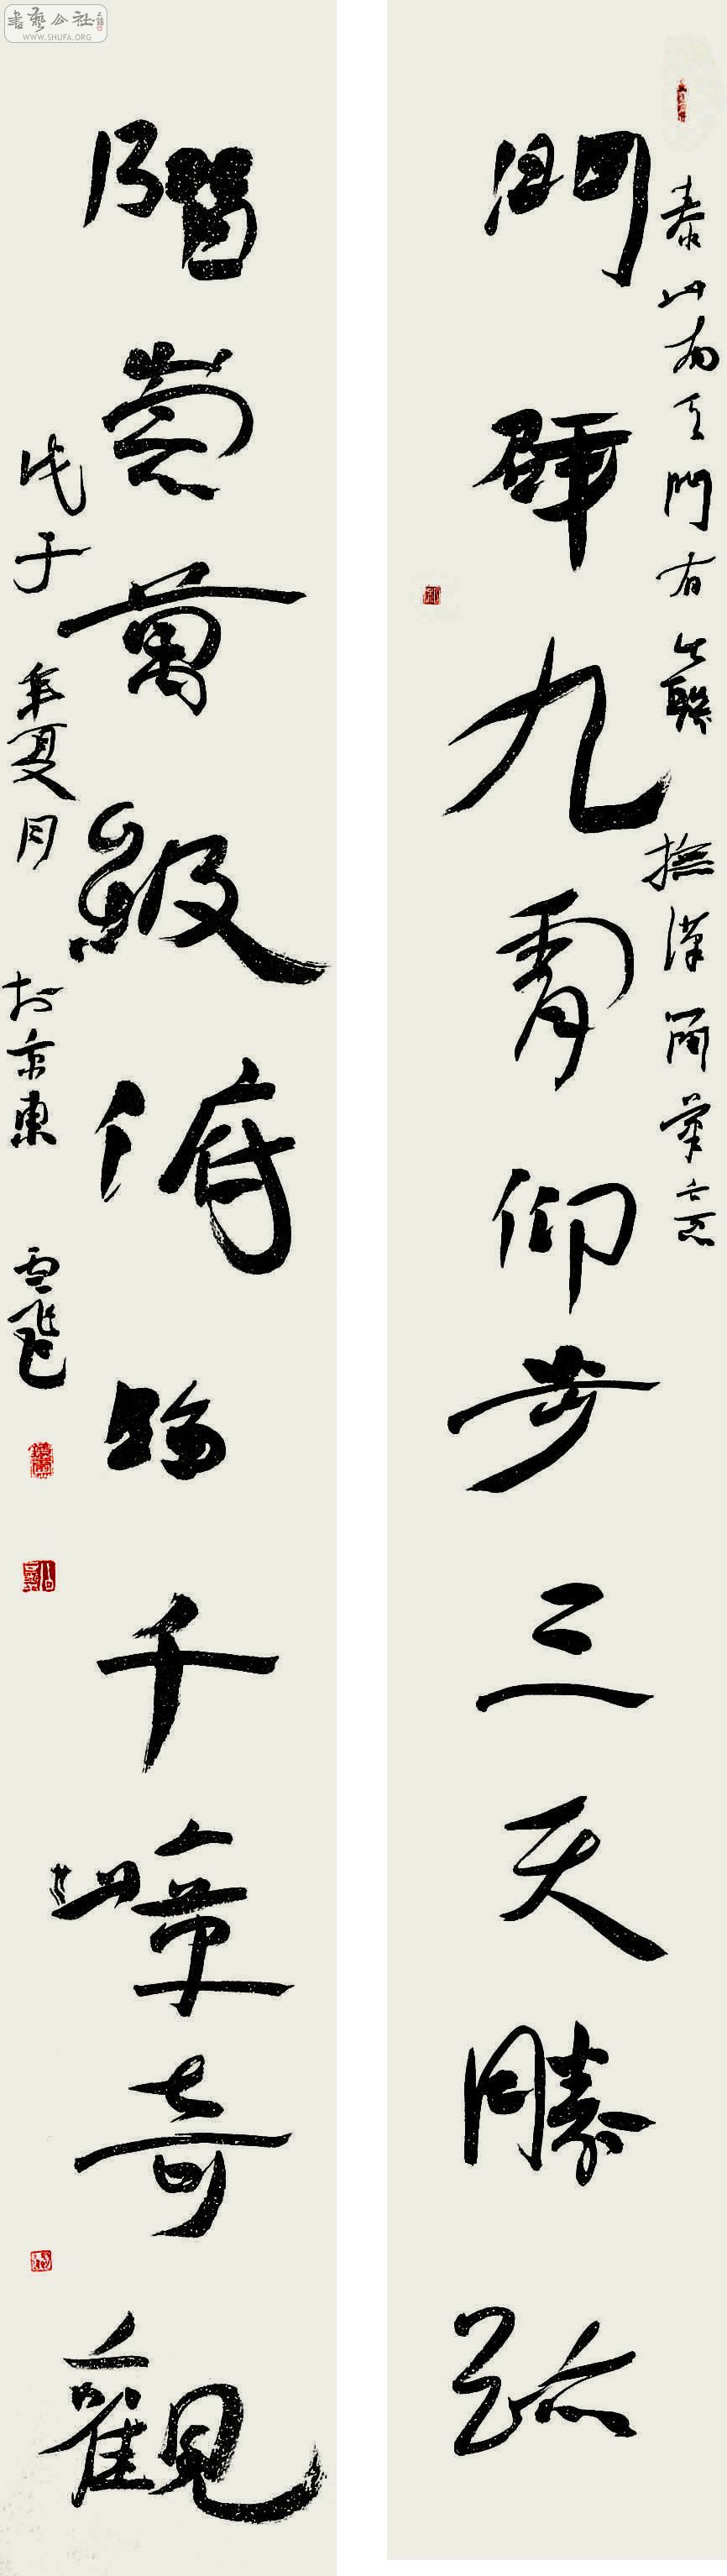 泰山南天门有此联 抚汉简笔意
門辟九霄仰步三天勝跡
階崇萬級俯臨千嶂奇觀
戊子年夏月 於京東 雪飛
書藝公社
WWW.SHUFA.ORG